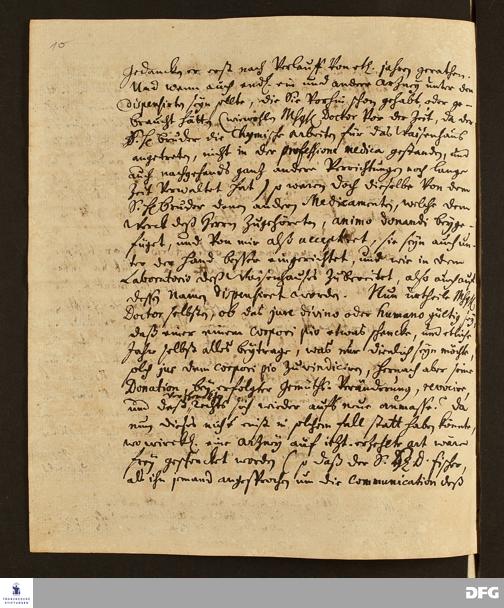 10
Gedancken er erst nach Verlauff Von etl. jahren gerathen.
Und wann auch endl. ein und andere Artzney unter den
dispensirten seyn solte, die Sie Vorhin schon gehabt oder ge-
braucht hätten (wiewohl Doctor Vor der Zeit, da der
Bruder die Chymische Arbeiten für das Waisenhauß
angetreten, nicht in der professione medica gestanden, und
auch nachgehends gantz andere Verrichtungen noch lange
Zeit Verwaltet hat) so waren doch dieselbe Von dem
Bruder denen andern Medicamenten, welche dem
Werck deß Herrn Zugehöreten, animo donandi beyge-
füget, und Von mir alß acceptiret, sie seyn auch un-
ter der Hand beßer eingerichtet, und wie in dem
Laboratorio deß Waisenhauses Zubereitet, alß auch auf
deßen Namen dispensiret worden. Nun urtheile
Doctor selbsten, ob das jure divino oder humano gültig sey
daß einer einem corpori pio etwas schencke, und etliche
Jahr selbst alles beytrage, was nur dienlich seyn möchte,
solch jus dem corpori pio Zu vindiciren, hernach aber seine
Donation, bey erfolgter Gemüths-Veränderung, revocire,
und deß rechts sich wieder aufs neue anmasse. Da
nun dieses nicht einst in solchem fall statt haben könte,
wo wirckl. eine Artzney auf itzt-erzehlte art wäre
frey geschencket worden (so daß der D. Fischer,
als ihn jemand angesprochen um die Communication deß
FRANCKESCHE STIFTUNGEN
DFG